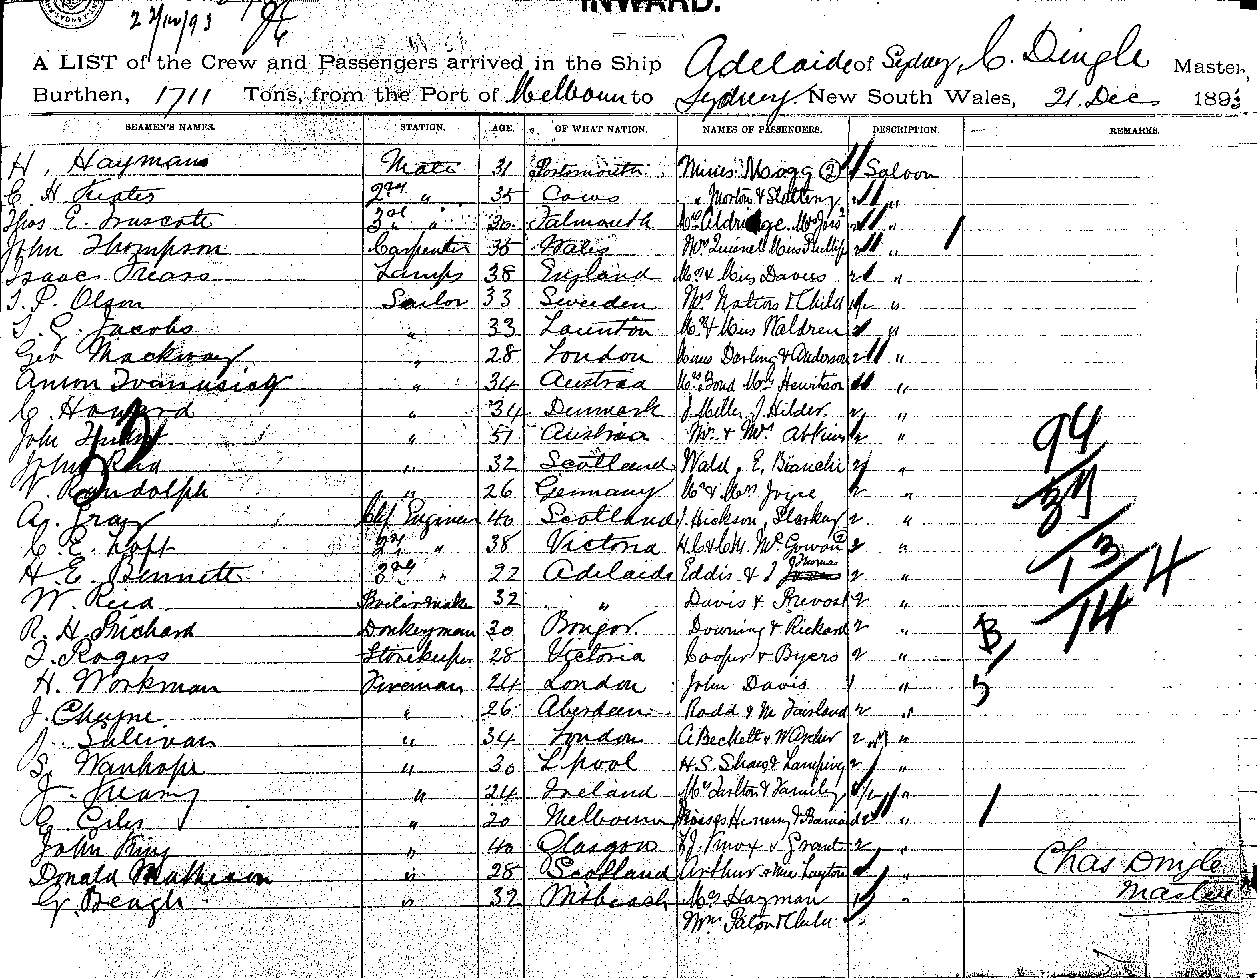 INWARD.
22/12/93
A LIST of the Crew and Passengers arrived in the Ship Adelaide of Sydney, C. Dingle Master,
Burthen, 1711 Tons, from the Port of Melbourn to Sydney New South Wales, 21 Dec 1893
SEAMEN'S NAMES. STATION. AGE. OF WHAT NATION. NAMES OF PASSENGERS. DESCRIPTION. REMARKS.
H. Haymans Mate 31 Portsmouth Misses Mogg (2) Saloon
E. H. 2nd " 35 Cows " Morton & Slattery 2 "
Thos E. Truscott 3rd " 30 Falmouth 2 "
John Thompson Carpenter 35 Wales Miss Phillip 2 "
Isaac Treass Lamps 38 England Mr & Miss Davies 2 "
P. Olson Sailor 33 Sweden Mrs & Child "
Jacobs " 33 Launton Mr & Miss Waldren "
Geo Mackway " 28 London Misses Darling & Anderson 2 "
Anton " 34 Austria Mrs Bond Mrs Hewitson "
C. Howard " 34 Denmark J Miller J Hilder 2 "
John " 51 Austria Mr & Mrs Atkins 2 "
John Reid " 32 Scotland Wald, E. Bianchi 2 "
Randolph " 26 Germany Mr & Mrs Joyce 2 "
A. Gray Chf Engineer 40 Scotland J. Hickson, 2 "
C. E. Loft 2nd " 38 Victoria McGowan (2) 2 "
H. E. Bennett 3rd " 27 Adelaide Eddis & J Thomas 2 "
W. Reid Boilermaker 32 " Davis & Prevost 2 "
R. H. Prichard Donkeyman 30 Bongor Downing & Rickard 2 "
Rogers Storekeeper 28 Victoria Cooper & Byers 2 "
H. Workman Fireman 24 London John Davis 1 "
J. Cheyne " 26 Aberdeen Rodd & McFarland 2 "
J. Sullivan " 34 London A Beckett & W Archer 2 "
S. Wanhope " 30 L'pool H. S. Shaw & 2 "
" 24 Ireland Mrs Tarlton & Family "
G. Giles " 20 Melbourne "
John King " 40 Glasgow Knox & Grant 2 "
Donald Mathieson " 28 Scotland Arthur & Miss Layton "
G. Beagh " 32 Mrs Hayman
Mrs Paton & Child
94
37
13
14 4
B
5
Chas Dingle
Master